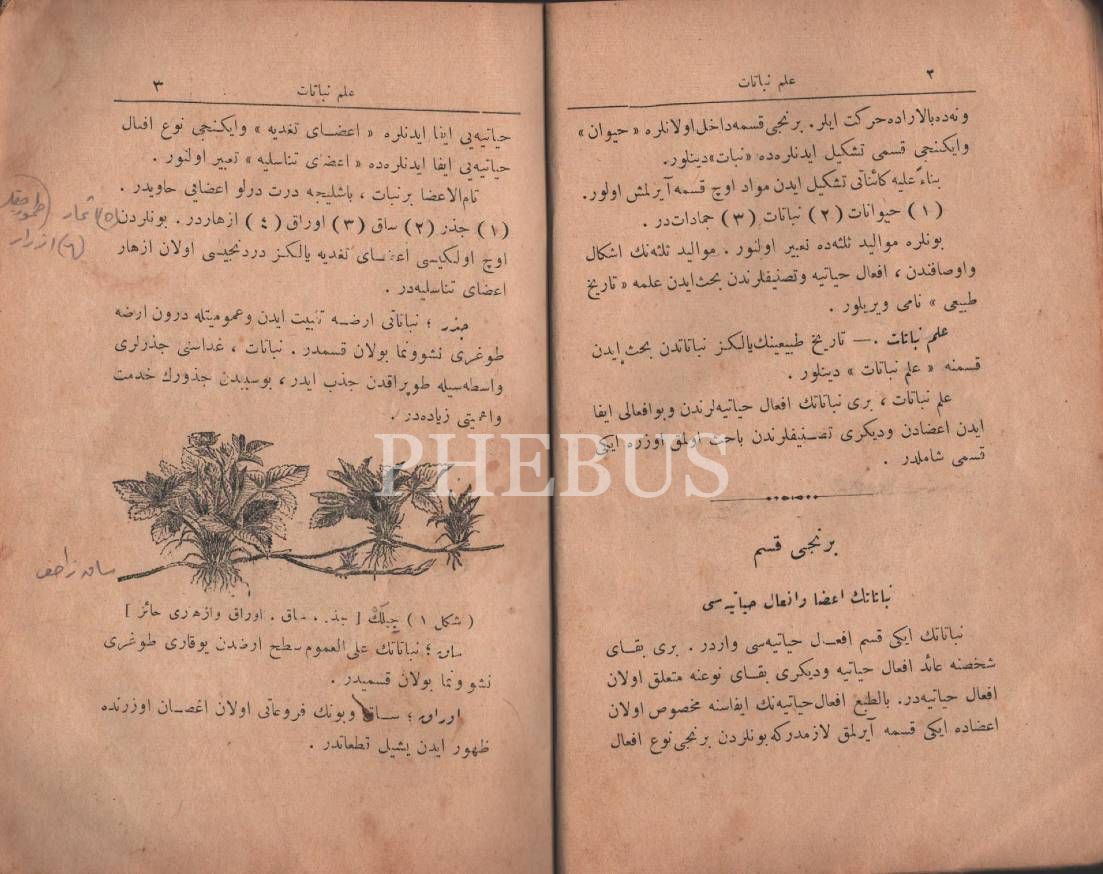 ٢
علم نباتات
ونه‌ده بالاراده حركت ايلر. برنجى قسمه داخل اولانلره « حيوان »
وايكنجى قسمى تشكيل ايدنلره‌ده «نبات» دينلور.
بناءً عليه كائناتى تشكيل ايدن مواد اوچ قسمه آيرلمش اولور.
(١) حيوانات (٢) نباتات (٣) جماداتدر.
بونلره مواليد ثلثه‌ده تعبير اولنور. مواليد ثلثه‌نك اشكال
واوصافندن، افعال حياتيه وتصنيفلرندن بحث ايدن علمه « تاريخ
طبيعى » نامى ويريلور.
علم نباتات .— تاريخ طبيعينك يالكز نباتاتدن بحث ايدن
قسمنه « علم نباتات » دينلور.
علم نباتات، برى نباتاتك افعال حياتيه‌لرندن وبوافعالى ايفا
ايدن اعضادن وديكرى تصنيفلرندن باحث اولمق اوزره ايكى
قسمى شاملدر.
برنجى قسم
نباتاتك اعضا وافعال حياتيه‌سى
نباتاتك ايكى قسم افعال حياتيه‌سى واردر. برى بقاى
شخصنه عائد افعال حياتيه وديكرى بقاى نوعنه متعلق اولان
افعال حياتيه‌در. بالطبع افعال حياتيه‌نك ايفاسنه مخصوص اولان
اعضاده ايكى قسمه آيرلمق لازمدركه بونلردن برنجى نوع افعال
علم نباتات
٣
حياتيه‌يى ايفا ايدنلره « اعضاى تغديه » وايكنجى نوع افعال
حياتيه‌يى ايفا ايدنلره‌ده « اعضاى تناسليه » تعبير اولنور.
تام‌الاعضا برنبات، باشليجه درت درلو اعضايى حاويدر.
(١) جذر (٢) ساق (٣) اوراق (٤) ازهاردر. بونلردن
اوچ اولكيسى اعضاى تغديه يالكز دردنجيسى اولان ازهار
اعضاى تناسليه‌در.
(٥) ثمار
(٦) ازرار
جذر؛ نباتاتى ارضه تثبيت ايدن وعموميتله درون ارضه
طوغرى نشوونما بولان قسمدر. نباتات، غداسنى جذرلرى
واسطه‌سيله طوپراقدن جذب ايدر، بوسببدن جذورك خدمت
واهميتى زياده‌در.
PHEBUS
(شكل ١) چيلك [جذر. ساق. اوراق وازهارى حائز]
ساق؛ نباتاتك على العموم سطح ارضدن يوقارى طوغرى
نشوونما بولان قسميدر.
اوراق؛ ساق وبونك فروعاتى اولان اغصان اوزرنده
ظهور ايدن يشيل قطعاتدر.